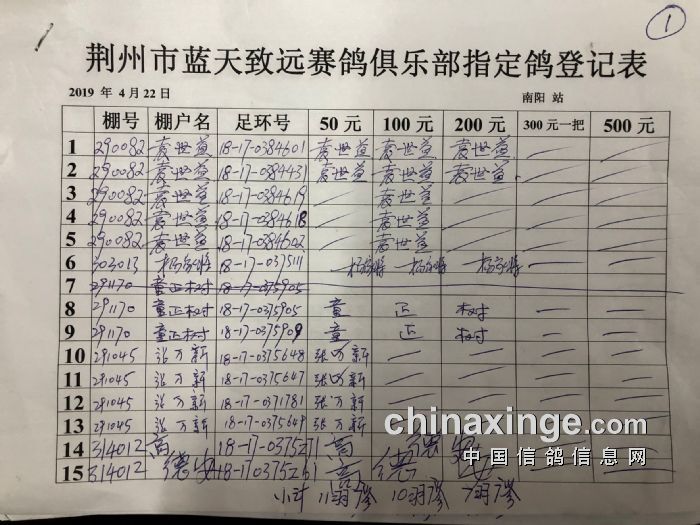 1
荆州市蓝天致远赛鸽俱乐部指定鸽登记表
2019 年 4月22日 南阳 站
棚号 棚户名 足环号 50 元 100 元 200 元 300元一把 500 元
1 290082 袁世益 18-17-0384601 袁世益 袁世益 袁世益 — —
2 290082 袁世益 18-17-0384431 袁世益 袁世益 袁世益 — —
3 290082 袁世益 18-17-0384619 — 袁世益 — — —
4 290082 袁世益 18-17-0384618 — 袁世益 — — —
5 290082 袁世益 18-17-0384602 — 袁世益 — — —
6 303013 18-17-037511 — — — — —
7 291170 童正树 18-17-0375905
8 291170 童正树 18-17-0375905 童 正 树 — —
9 291170 童正树 18-17-0375909 童 正 树 — —
10 291045 张万新 18-17-0375648 张万新 — — — —
11 291045 张万新 18-17-0375647 张万新 — — — —
12 291045 张万新 18-17-0371781 张万新 — — — —
13 291045 张万新 18-17-0375649 张万新 — — —
14 314012 高 18-17-0375271 高 德 安
15 314012 德安 18-17-0375261 高 德 安
小计 11羽 10羽 7羽
chinaxinge.com
中国信鸽信息网